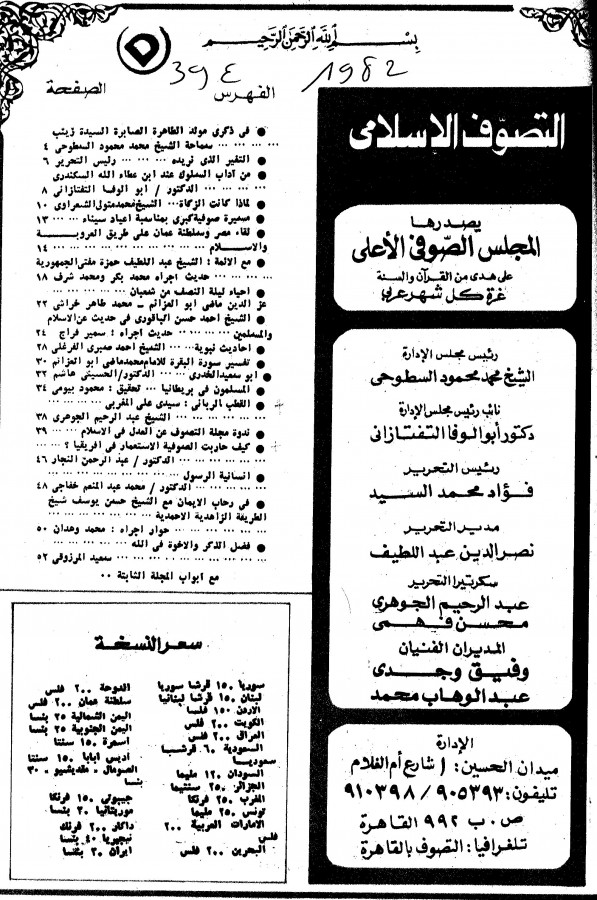 بسم الله الرحمن الرحيم
39٤ 1982
الفهرس الصفحة
● فى ذكرى مولد الطاهرة الصابرة السيدة زينب
... ... ... سماحة الشيخ محمد محمود السطوحى ٤
● التغير الذى نريده ... ... ... رئيس التحرير ٦
● من آداب السلوك عند ابن عطاء الله السكندرى
... ... ... الدكتور / ابو الوفا التفتازانى ٨
● لماذا كانت الزكاة... الشيخ محمد متولى الشعراوى ١٠
● مسيرة صوفية كبرى بمناسبة اعياد سيناء ... ... ١٣
● لقاء مصر وسلطنة عمان على طريق العروبة
والاسلام ... ... ... ... ... ... ١٤
● مع الائمة : الشيخ عبد اللطيف حمزة مفتى الجمهورية
... ... ... حديث اجراه محمد بكر ومحمد شرف ١٨
● احياء ليلة النصف من شعبان ... ... ... ...
عز الدين ماضى ابو العزائم ـ محمد طاهر خراشى ٢٢
● الشيخ احمد حسن الباقورى فى حديث عن الاسلام
والمسلمين ... ... ... حديث اجراه : سمير فراج ٢٤
● احاديث نبوية ... ... الشيخ احمد صبرى الفرغلى ٢٨
● تفسير سورة البقرة للامام محمد ماضى ابو العزائم ٣٠
● ابو سعيد الخدرى ... ... الدكتور/الحسينى هاشم ٣٢
● المسلمون فى بريطانيا ... تحقيق : محمود بيومى ٣٤
● القطب الربانى : سيدى على المغربى ... ...
... ... ... ... الشيخ عبد الرحيم الجوهرى ٣٨
● ندوة مجلة التصوف عن العدل فى الاسلام ... ٣٩
● كيف حاربت الصوفية الاستعمار فى افريقيا ؟ ...
... ... ... الدكتور / عبد الرحمن النجار ٤٦
● انسانية الرسول ... ... ... ... ... ...
... ... الدكتور / محمد عبد المنعم خفاجى ٤٨
● فى رحاب الايمان مع الشيخ حسن يوسف شيخ
الطريقة الزاهدية الاحمدية ... ... ... ...
... ... ... حوار اجراه : محمد وهدان ٥٠
● فضل الذكر والاخوة فى الله ... ... ... ...
... ... ... ... ... ... سعيد المرزوقى ٥٢
مع ابواب المجلة الثابتة ٠٠
سعر النسخة
سوريا ١٥٠ قرشا سوريا
لبنان ١٥٠ قرشا لبنانيا
الاردن ١٥٠ فلسا
الكويت ٢٠٠ فلس
العراق ٢٠٠ فلس
السعودية ٦٠ قرشا
سعوديا
السودان ١٢٠ مليما
الجزائر ٢٥٠ سنتيما
المغرب ٢٥٠ فرنكا
تونس ٢٥٠ مليما
الامارات العربية ٢٠٠
فلس
البحرين ٢٠٠ فلس
الدوحة ٢٠٠ فلس
سلطنة عمان ٢٠٠ فلس
اليمن الشمالية ٢٥ بنسا
اليمن الجنوبية ٢٥ بنسا
اسمرة ١٥٠ سنتا
اديس ابابا ١٥٠ سنتا
الصومال ـ مقديشيو ٣٠
بنسا
جيبوتى ١٥٠ فرنكا
موريتانيا ٣٠ بنسا
داكار ٢٠٠ فرنك
نيجيريا ٤٠ بنسا
ايران ٣٠ بنسا
التصوف الإسلامى
يصدرها
المجلس الصوفى الأعلى
على هدى من القرآن والسنة
غرة كل شهر عربى
رئيس مجلس الإدارة
الشيخ محمد محمود السطوحى
نائب رئيس مجلس الإدارة
دكتور أبو الوفا التفتازانى
رئيس التحرير
فؤاد محمد السيد
مدير التحرير
نصر الدين عبد اللطيف
سكرتيرا التحرير
عبد الرحيم الجوهرى
محسن فهمى
المديران الفنيان
وفيق وجدى
عبد الوهاب محمد
الإدارة
ميدان الحسين : ١ شارع أم الغلام
تليفون : ٩٠٥٣٩٣ / ٩١٠٣٩٨
ص . ب ٩٩٢ القاهرة
تلغرافيا : التصوف بالقاهرة